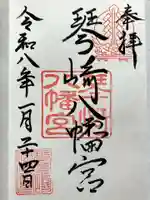 奉拝
琴崎八幡宮
八幡宮
令和八年一月二十四日